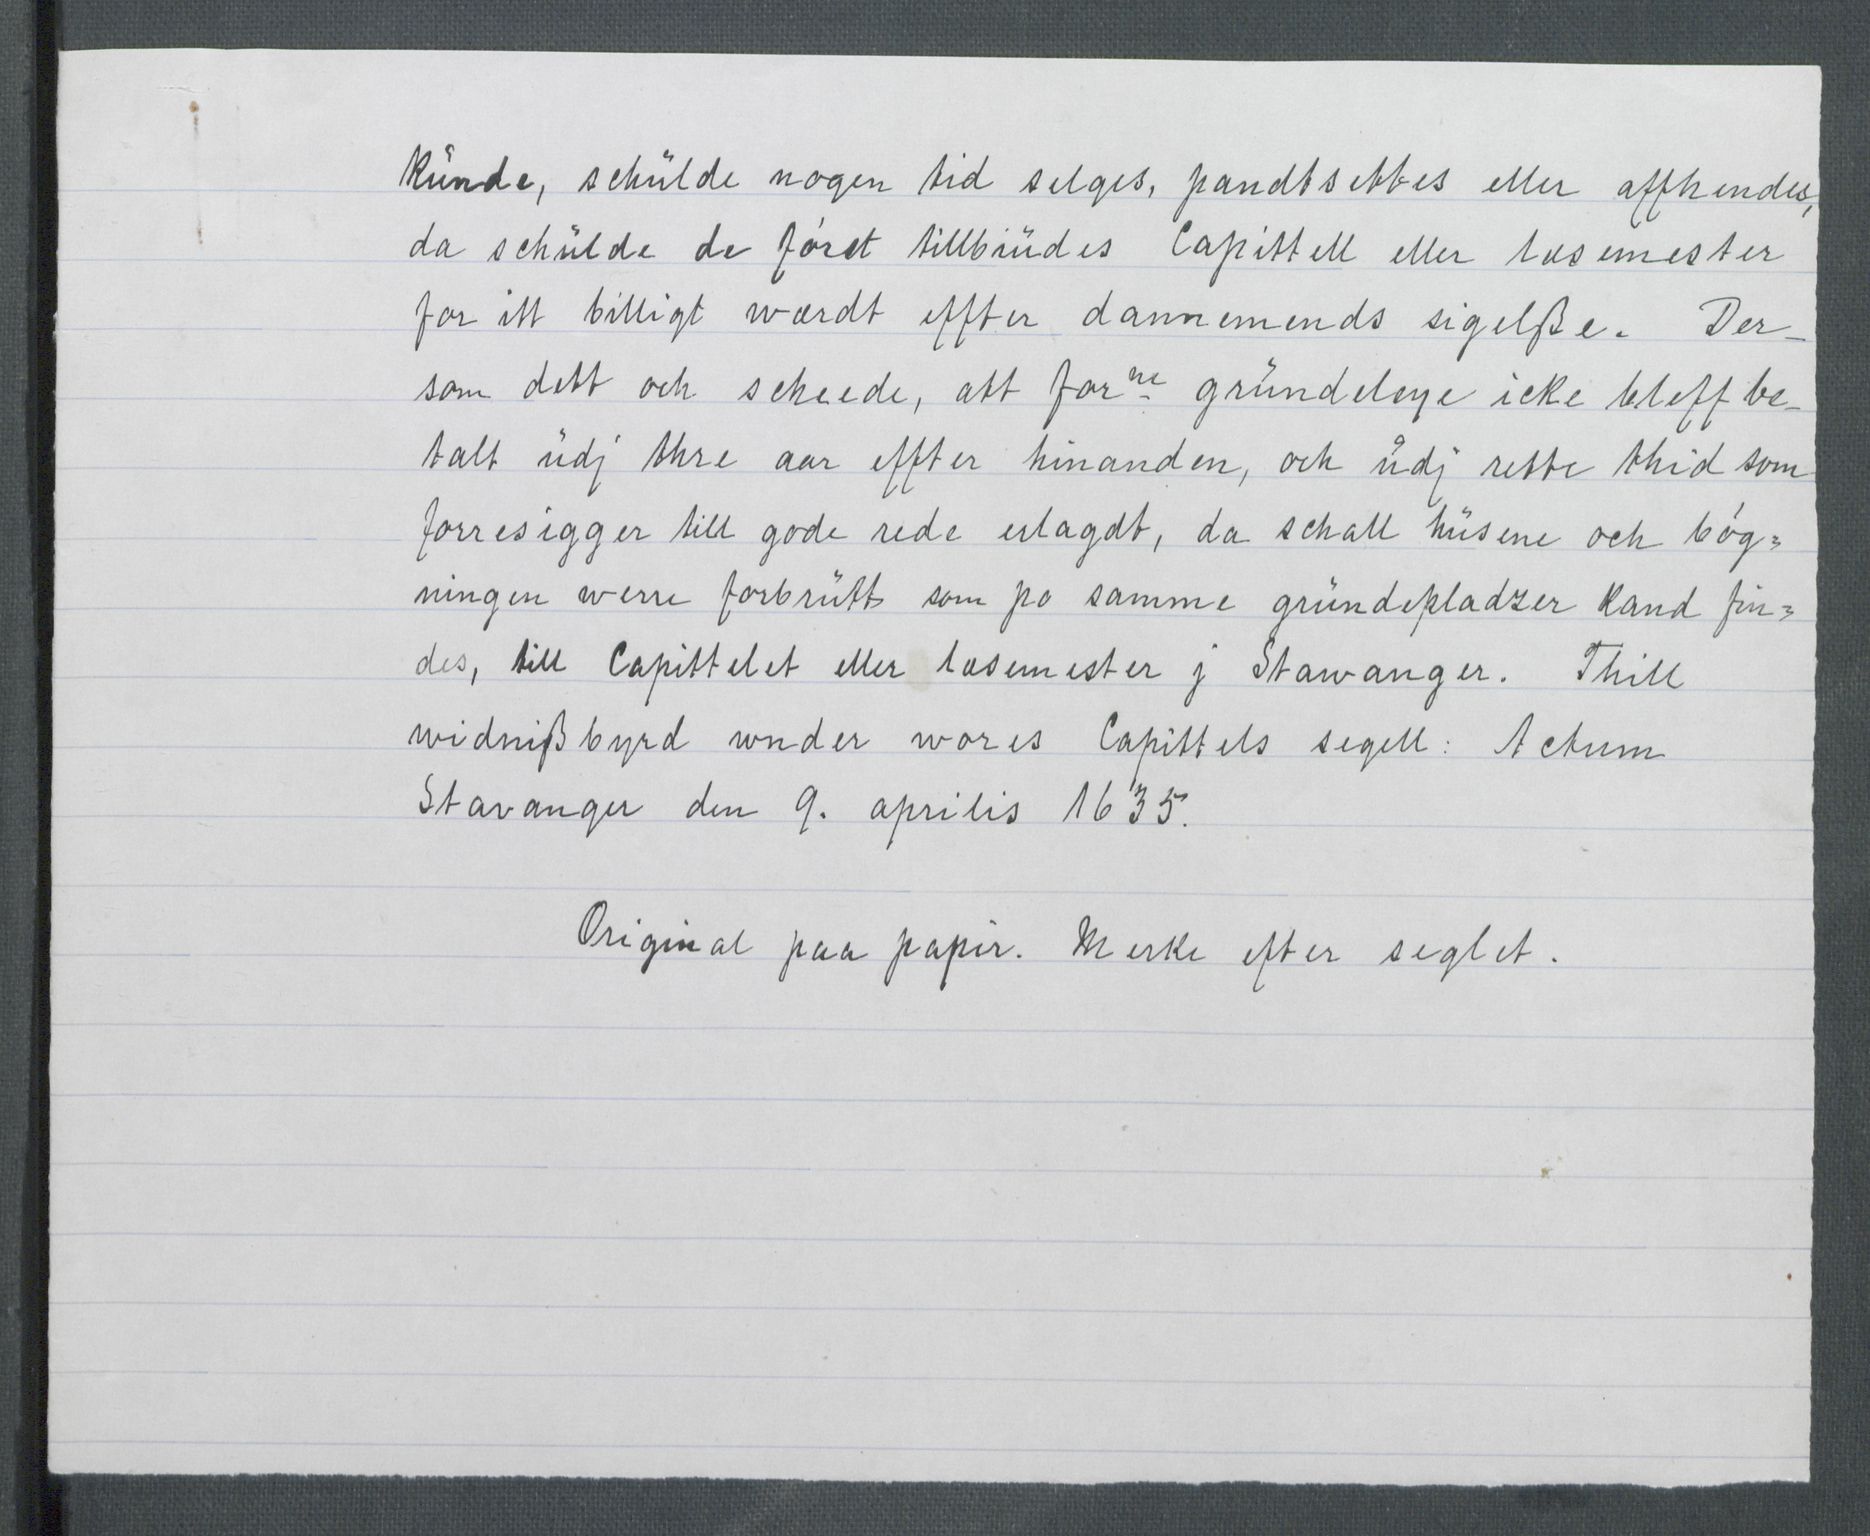 künde, schülde nogen tid selges, pandtsettes eller affhendes,
da schülde de fórst tillbiüdes Capittell eller læsemester
for itt billigt wærdt effter dannemends sigelße. Der-
som dett och scheede, att forne gründeleye icke bleff be-
talt üdj thre aar effter hinanden, och üdj rette thid som
forresigger till gode rede erlagdt, da schall hüsene och bóg=
ningen werre forbrütt som po samme gründepladzer kand fin=
des, till Capittelet eller læsemester j Stawanger. Thill
widnißbyrd wnder wores Capittels segell: Actum
Stavanger den 9. aprilis 1635.
Original paa papir. Merke efter seglet.